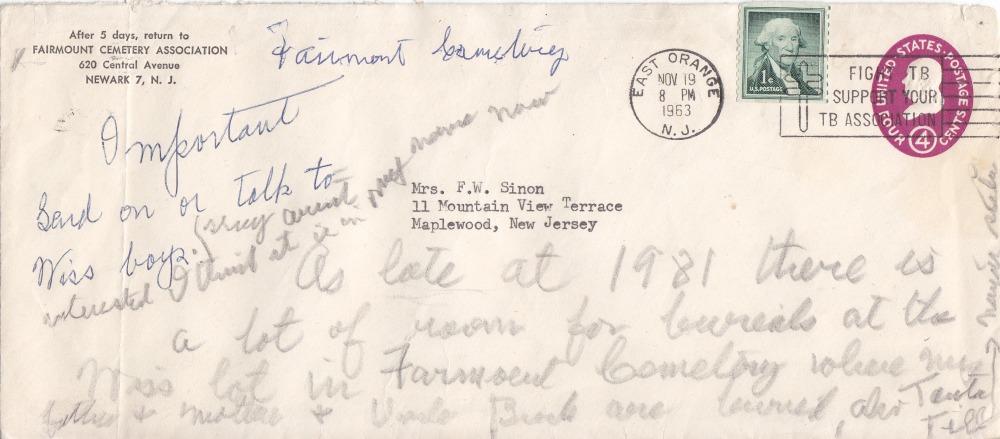 After 5 days, return to
FAIRMOUNT CEMETERY ASSOCIATION
620 Central Avenue
NEWARK 7, N. J.
Fairmont Cemetery
EAST ORANGE
NOV 19
8 PM
1963
N. J.
1¢
U.S. POSTAGE
FIGHT TB
SUPPORT YOUR
TB ASSOCIATION
UNITED STATES POSTAGE
4
FOUR CENTS
Important
Send on or talk to
Wiss boys.
Mrs. F.W. Sinon
11 Mountain View Terrace
Maplewood, New Jersey
they arent
interested I think it is in my name now
As late at 1981 there is
a lot of room for bureals at the
Wiss lot in Farmount Cemetery where my
father & mother & Uncle Brock are burried also Tanta
Till